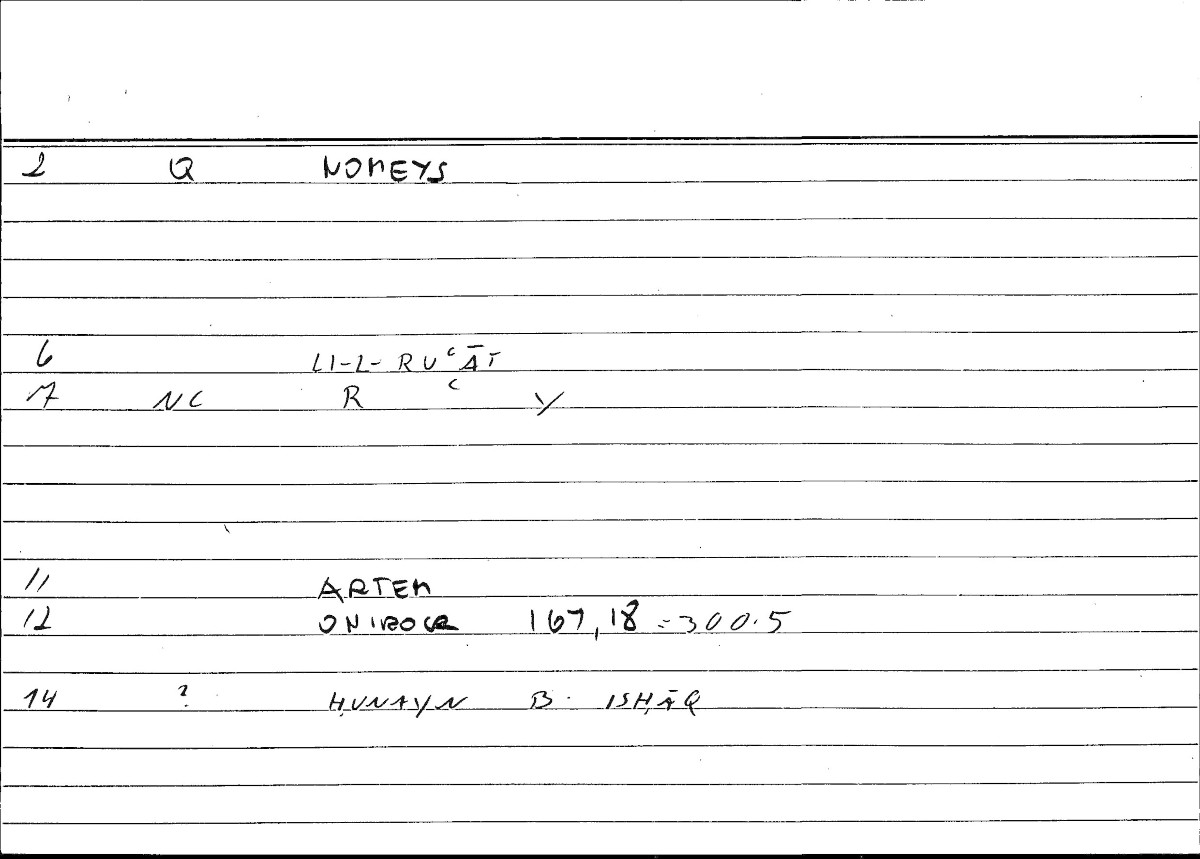 2 Q NOMEYS
6 LI-L-RUʿĀT
7 NC R ʿ Y
11 ARTEM
12 ONIROCR 167,18 = 300.5
14 ? ḤUNAYN B. ISḤĀQ